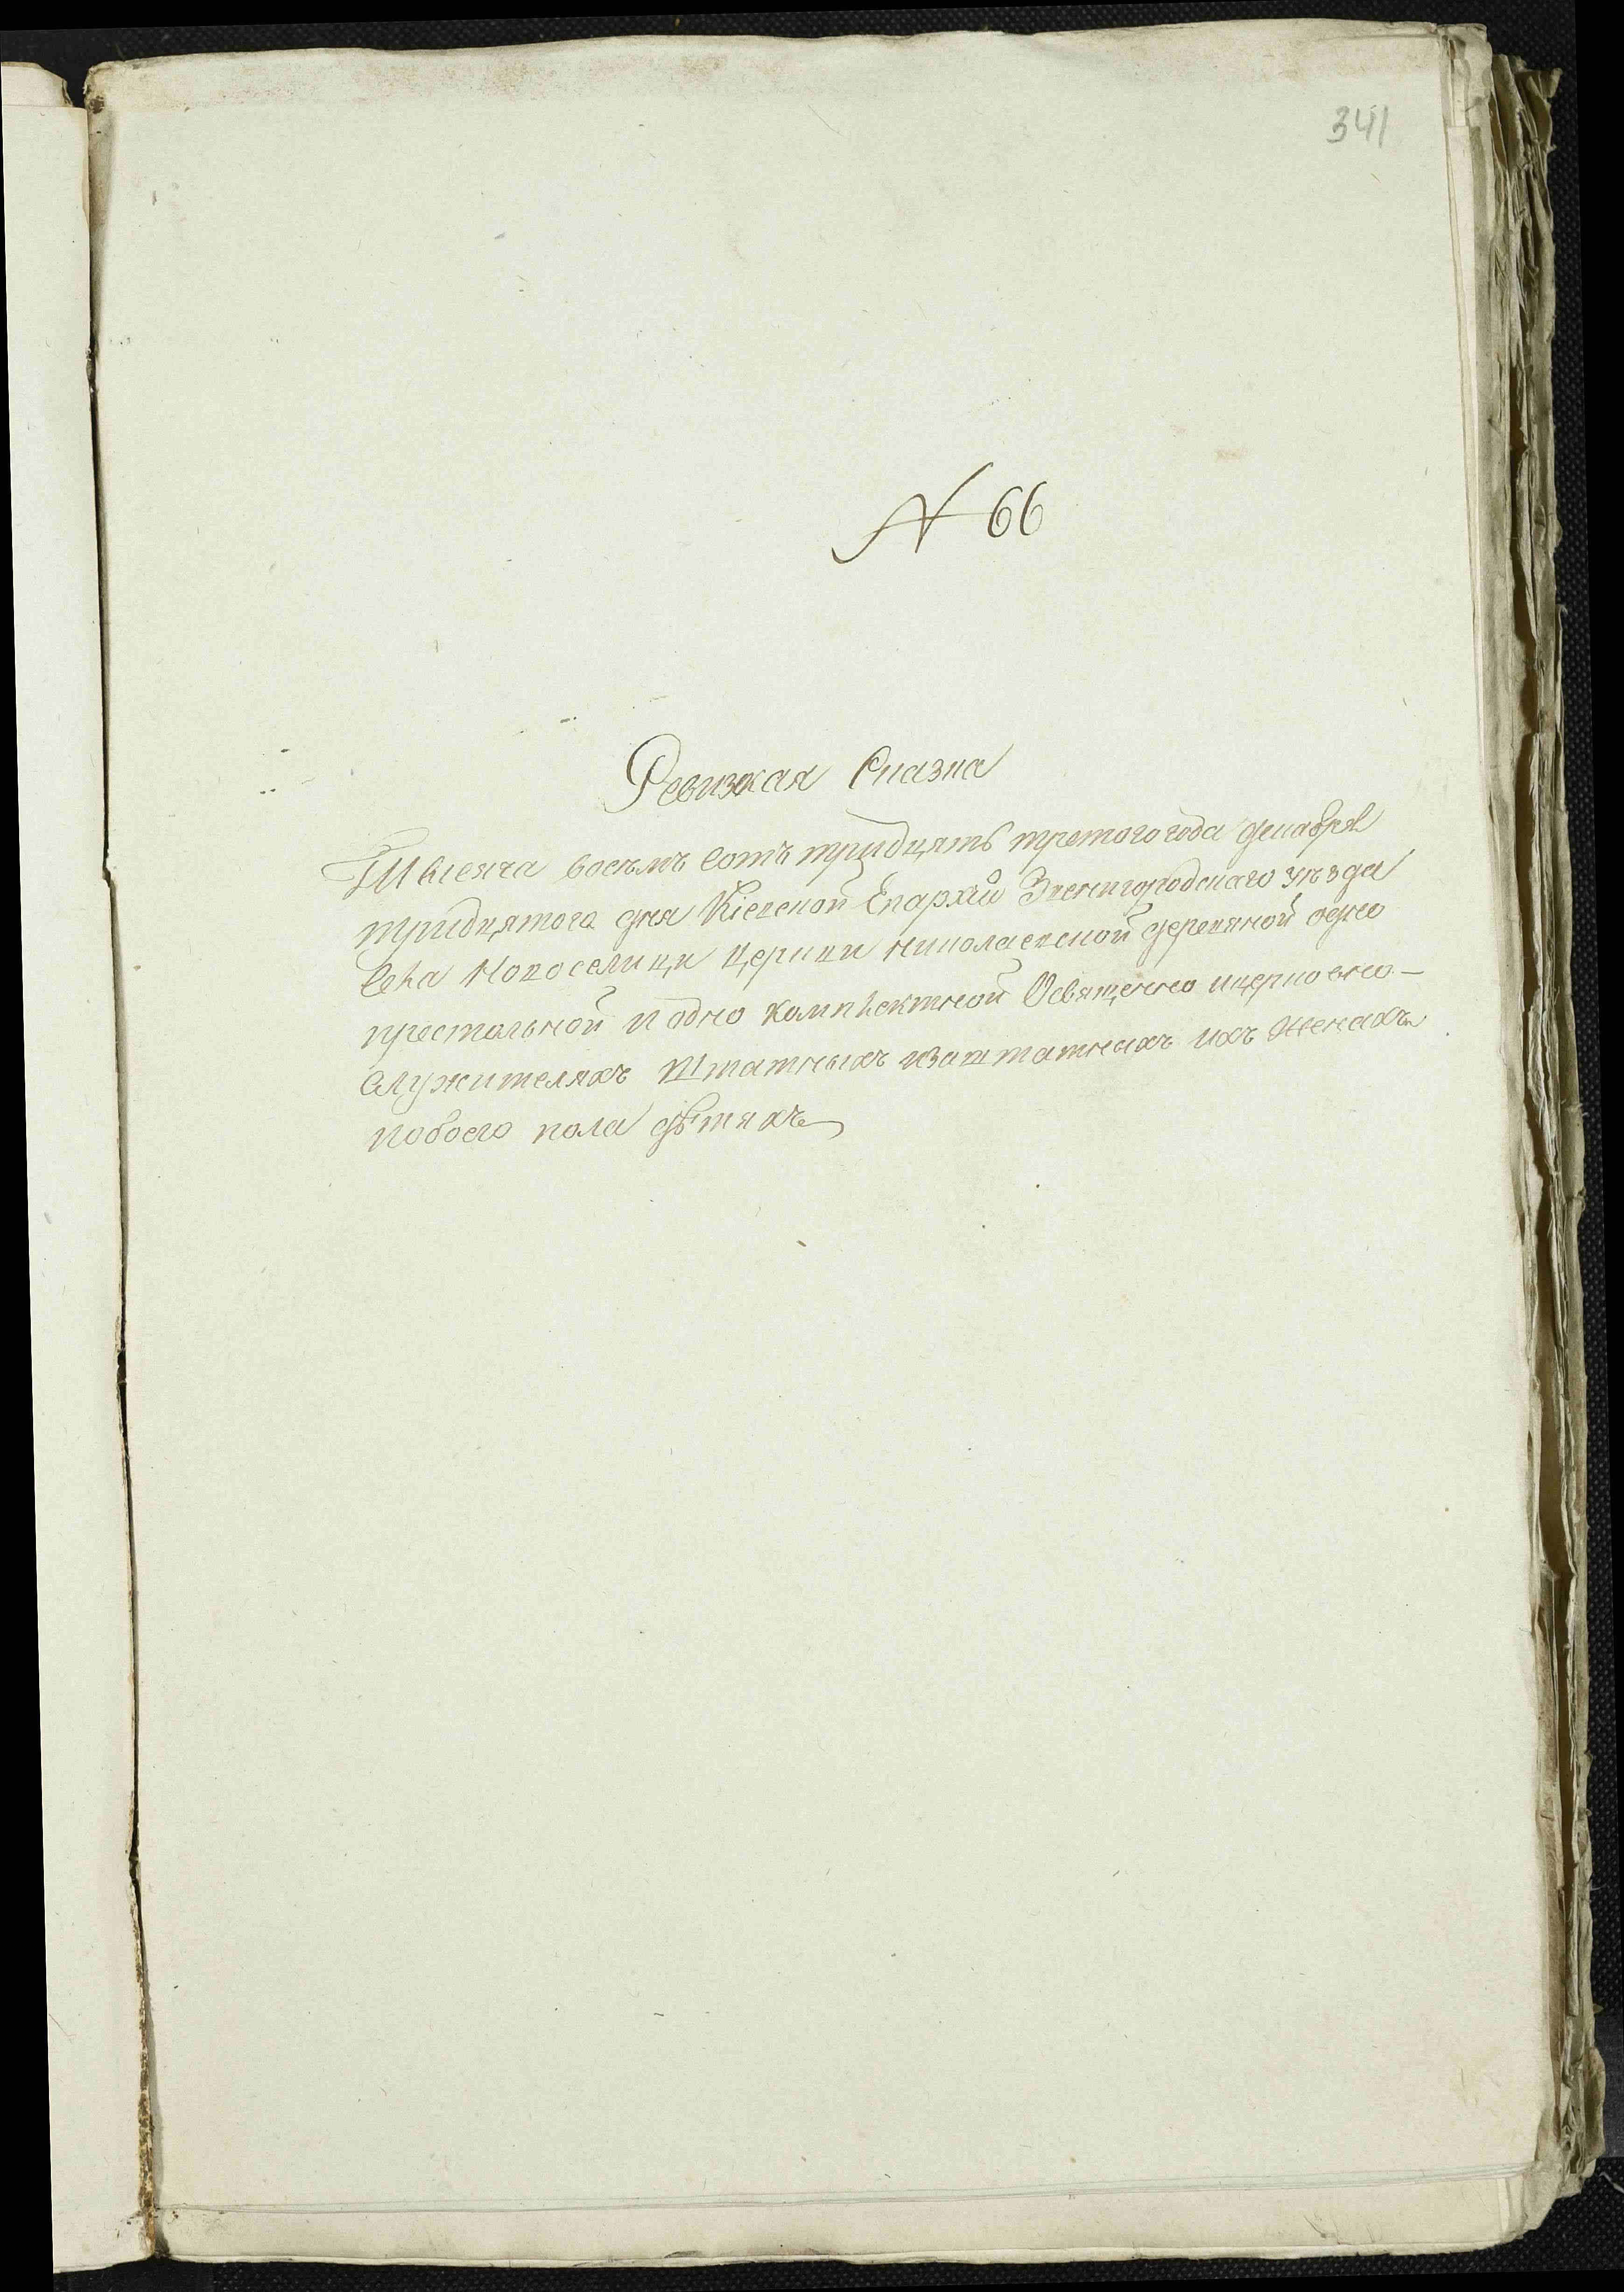 341
N 66
Ревизкая Сказка
Тысяча восемъ сотъ тридцять третого года декабря
тридцятого дня Кіевской Епархіи Звенигородскаго уѣзда
Села Новоселици Церкви николаевской деревяной одно
престольной и одно комплектной Освященно ицерковно-
служителяхъ Штатныхъ изаштатныхъ ихъ женахъ
иобоего пола дѣтяхъ